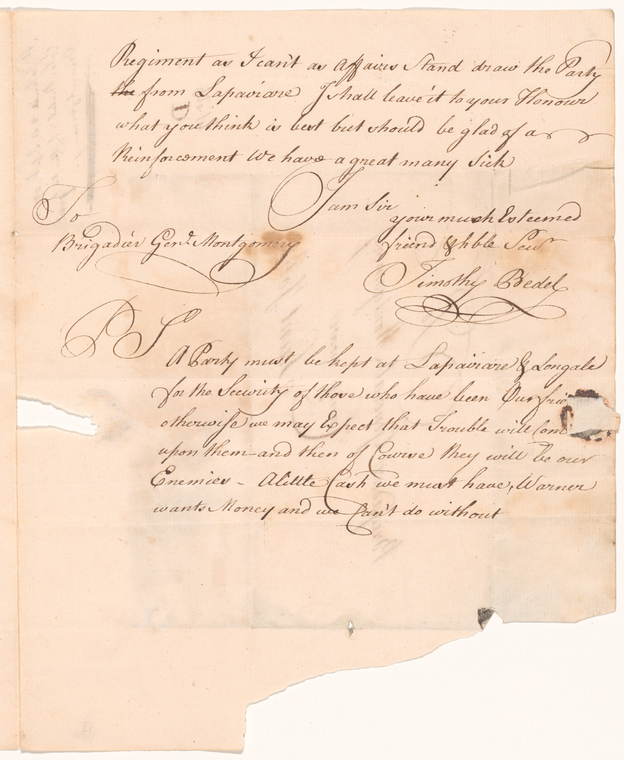 Regiment as I can't as Affairs Stand draw the Party
the from Lapairare I shall leave it to your Honour
what you think is best but should be glad of a
Reinforcement We have a great many Sick
I am Sir
your much Esteemed
friend & hble Serr
To
Brigadier Genl. Montgomery
Timothy Bedel
PS
A Party must be kept at Lapairare & Longale
for the Security of those who have been Our frie
otherwise we may Expect that Trouble will Com
upon them and then of Course they will be our
Enemies - A little Cash we must have, Warner
wants Money and we Can't do without